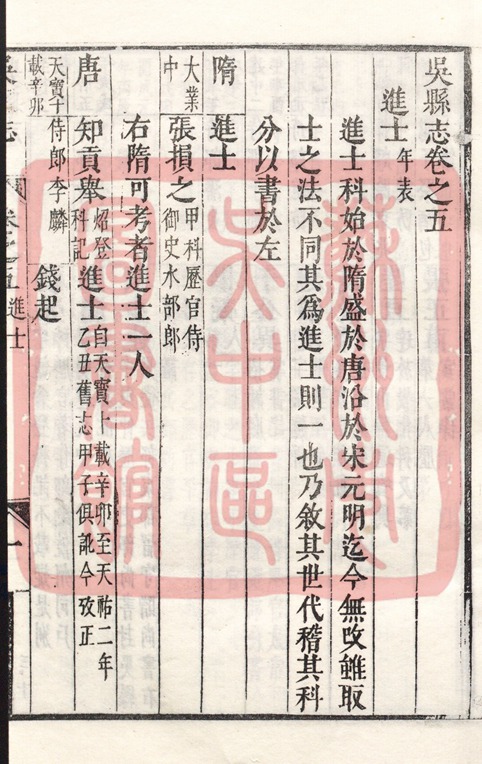 吳縣志卷之五
進士年表
進士科始於隋盛於唐沿於宋元明迄今無改雖取
士之法不同其爲進士則一也乃敘其世代稽其科
分以書於左
隋 進士
大業中 張損之 甲科歷官侍御史水部郎
右隋可考者進士一人
唐 知貢舉 炤登科記 進士 自天寶十載辛卯至天祐二年乙丑舊志甲子俱訛今攷正
天寶十載辛卯 侍郎李麟 錢起
卷之五 進士
一
蘇州市
吳中區
圖書館